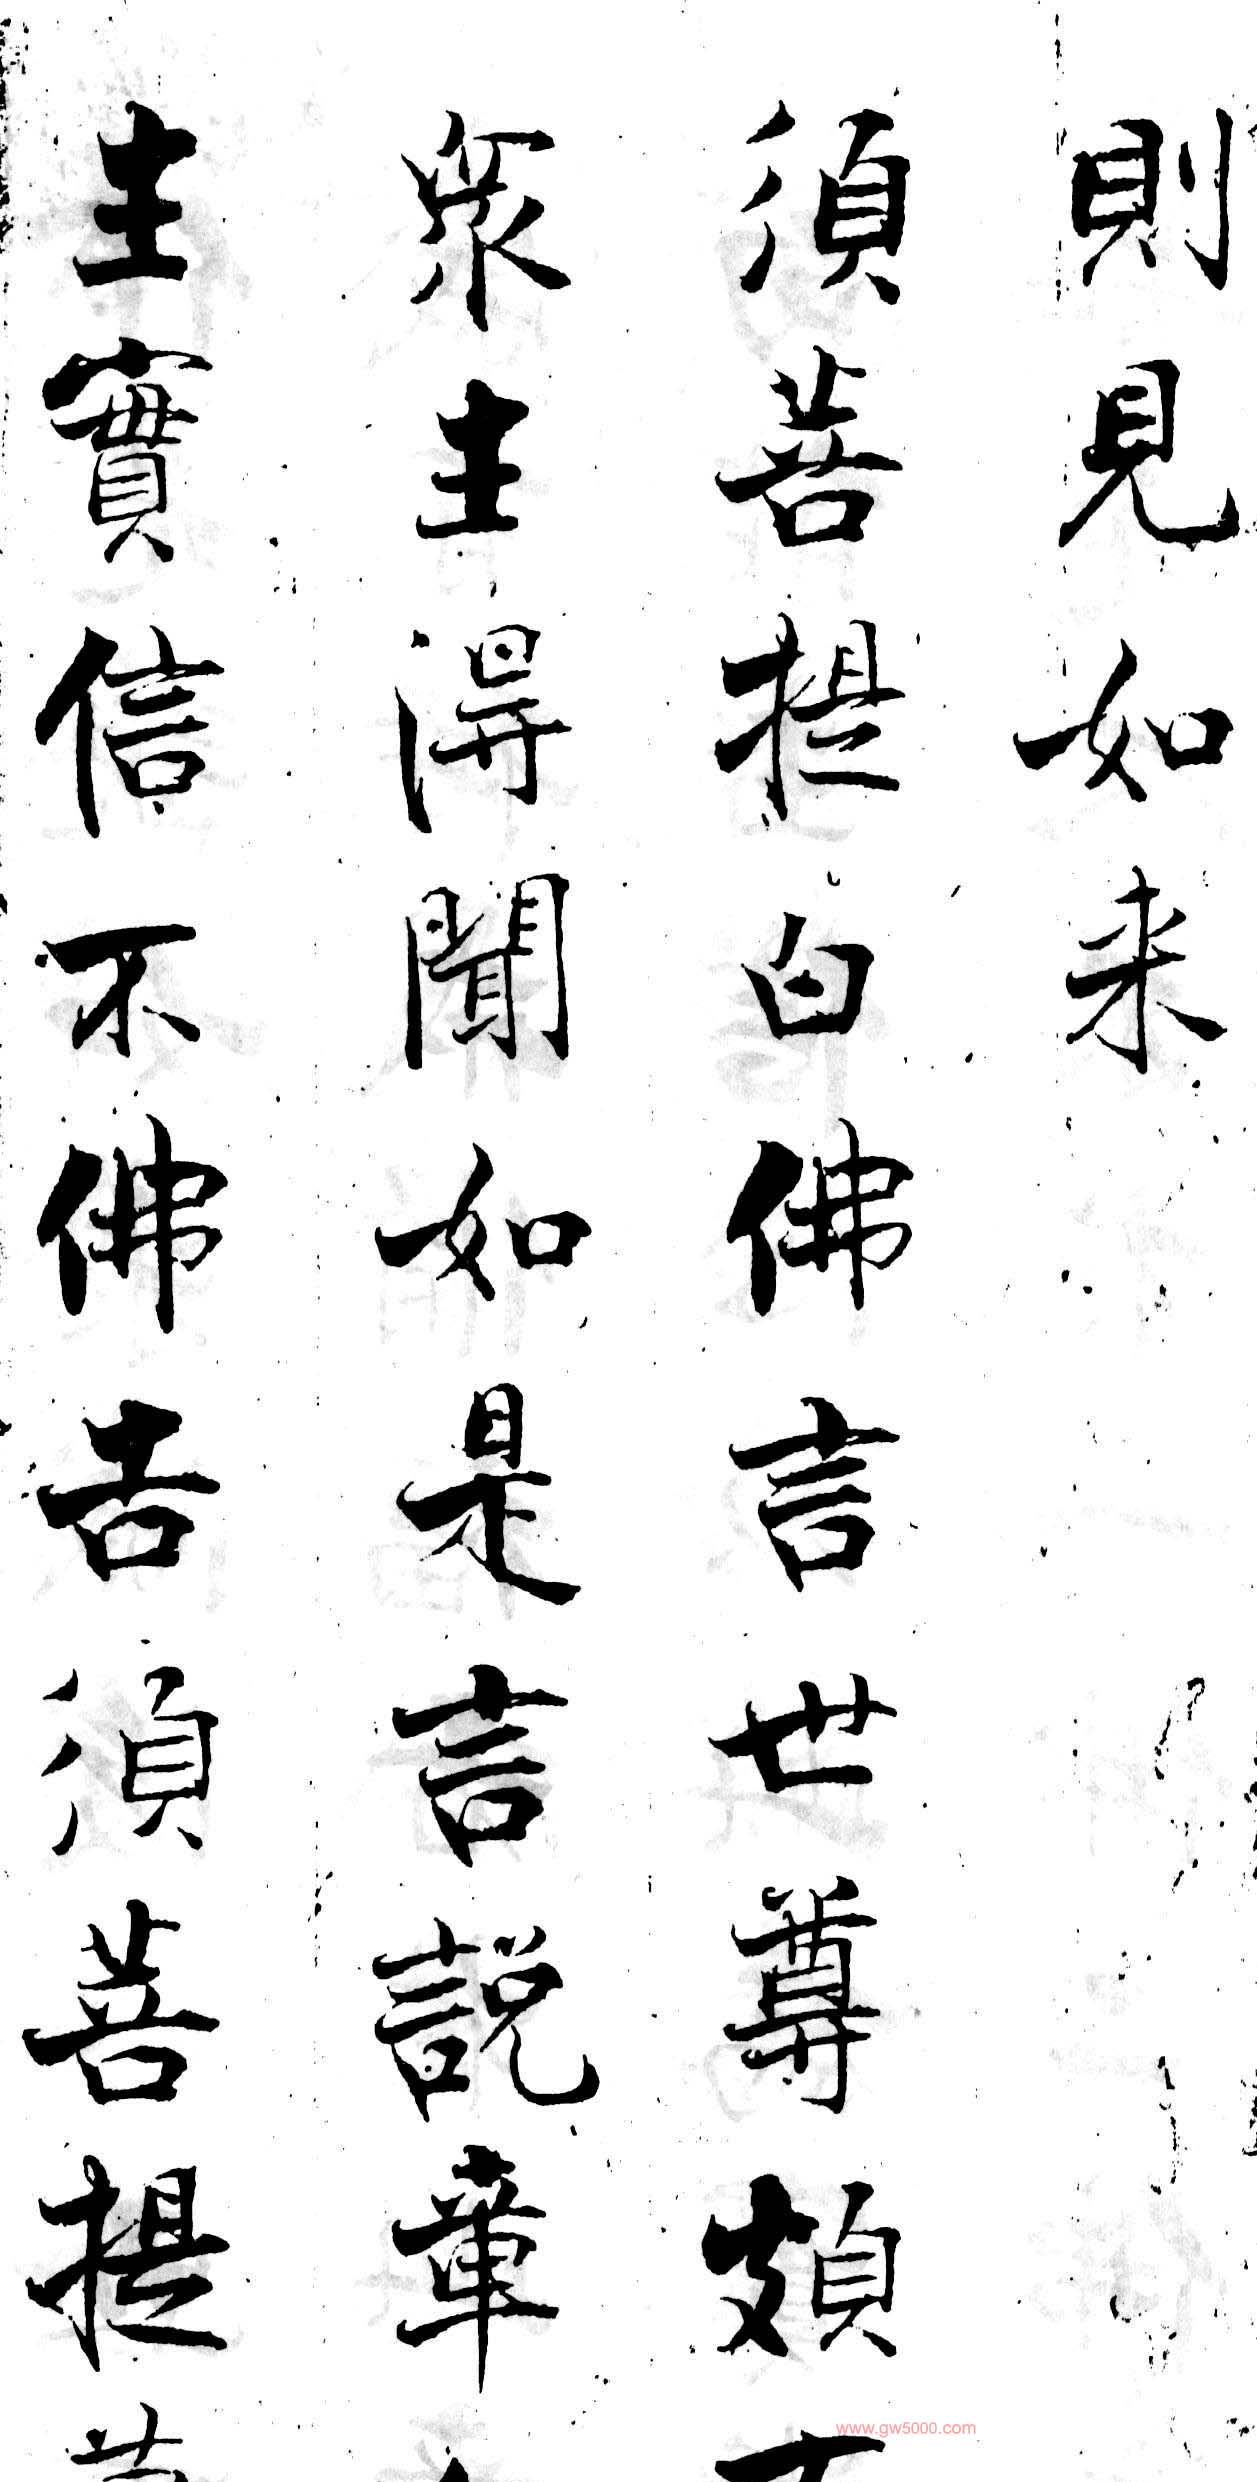 則見如来
須菩提白佛言世尊頗
眾生得聞如是言說章
生實信不佛告須菩提
www.gw5000.com